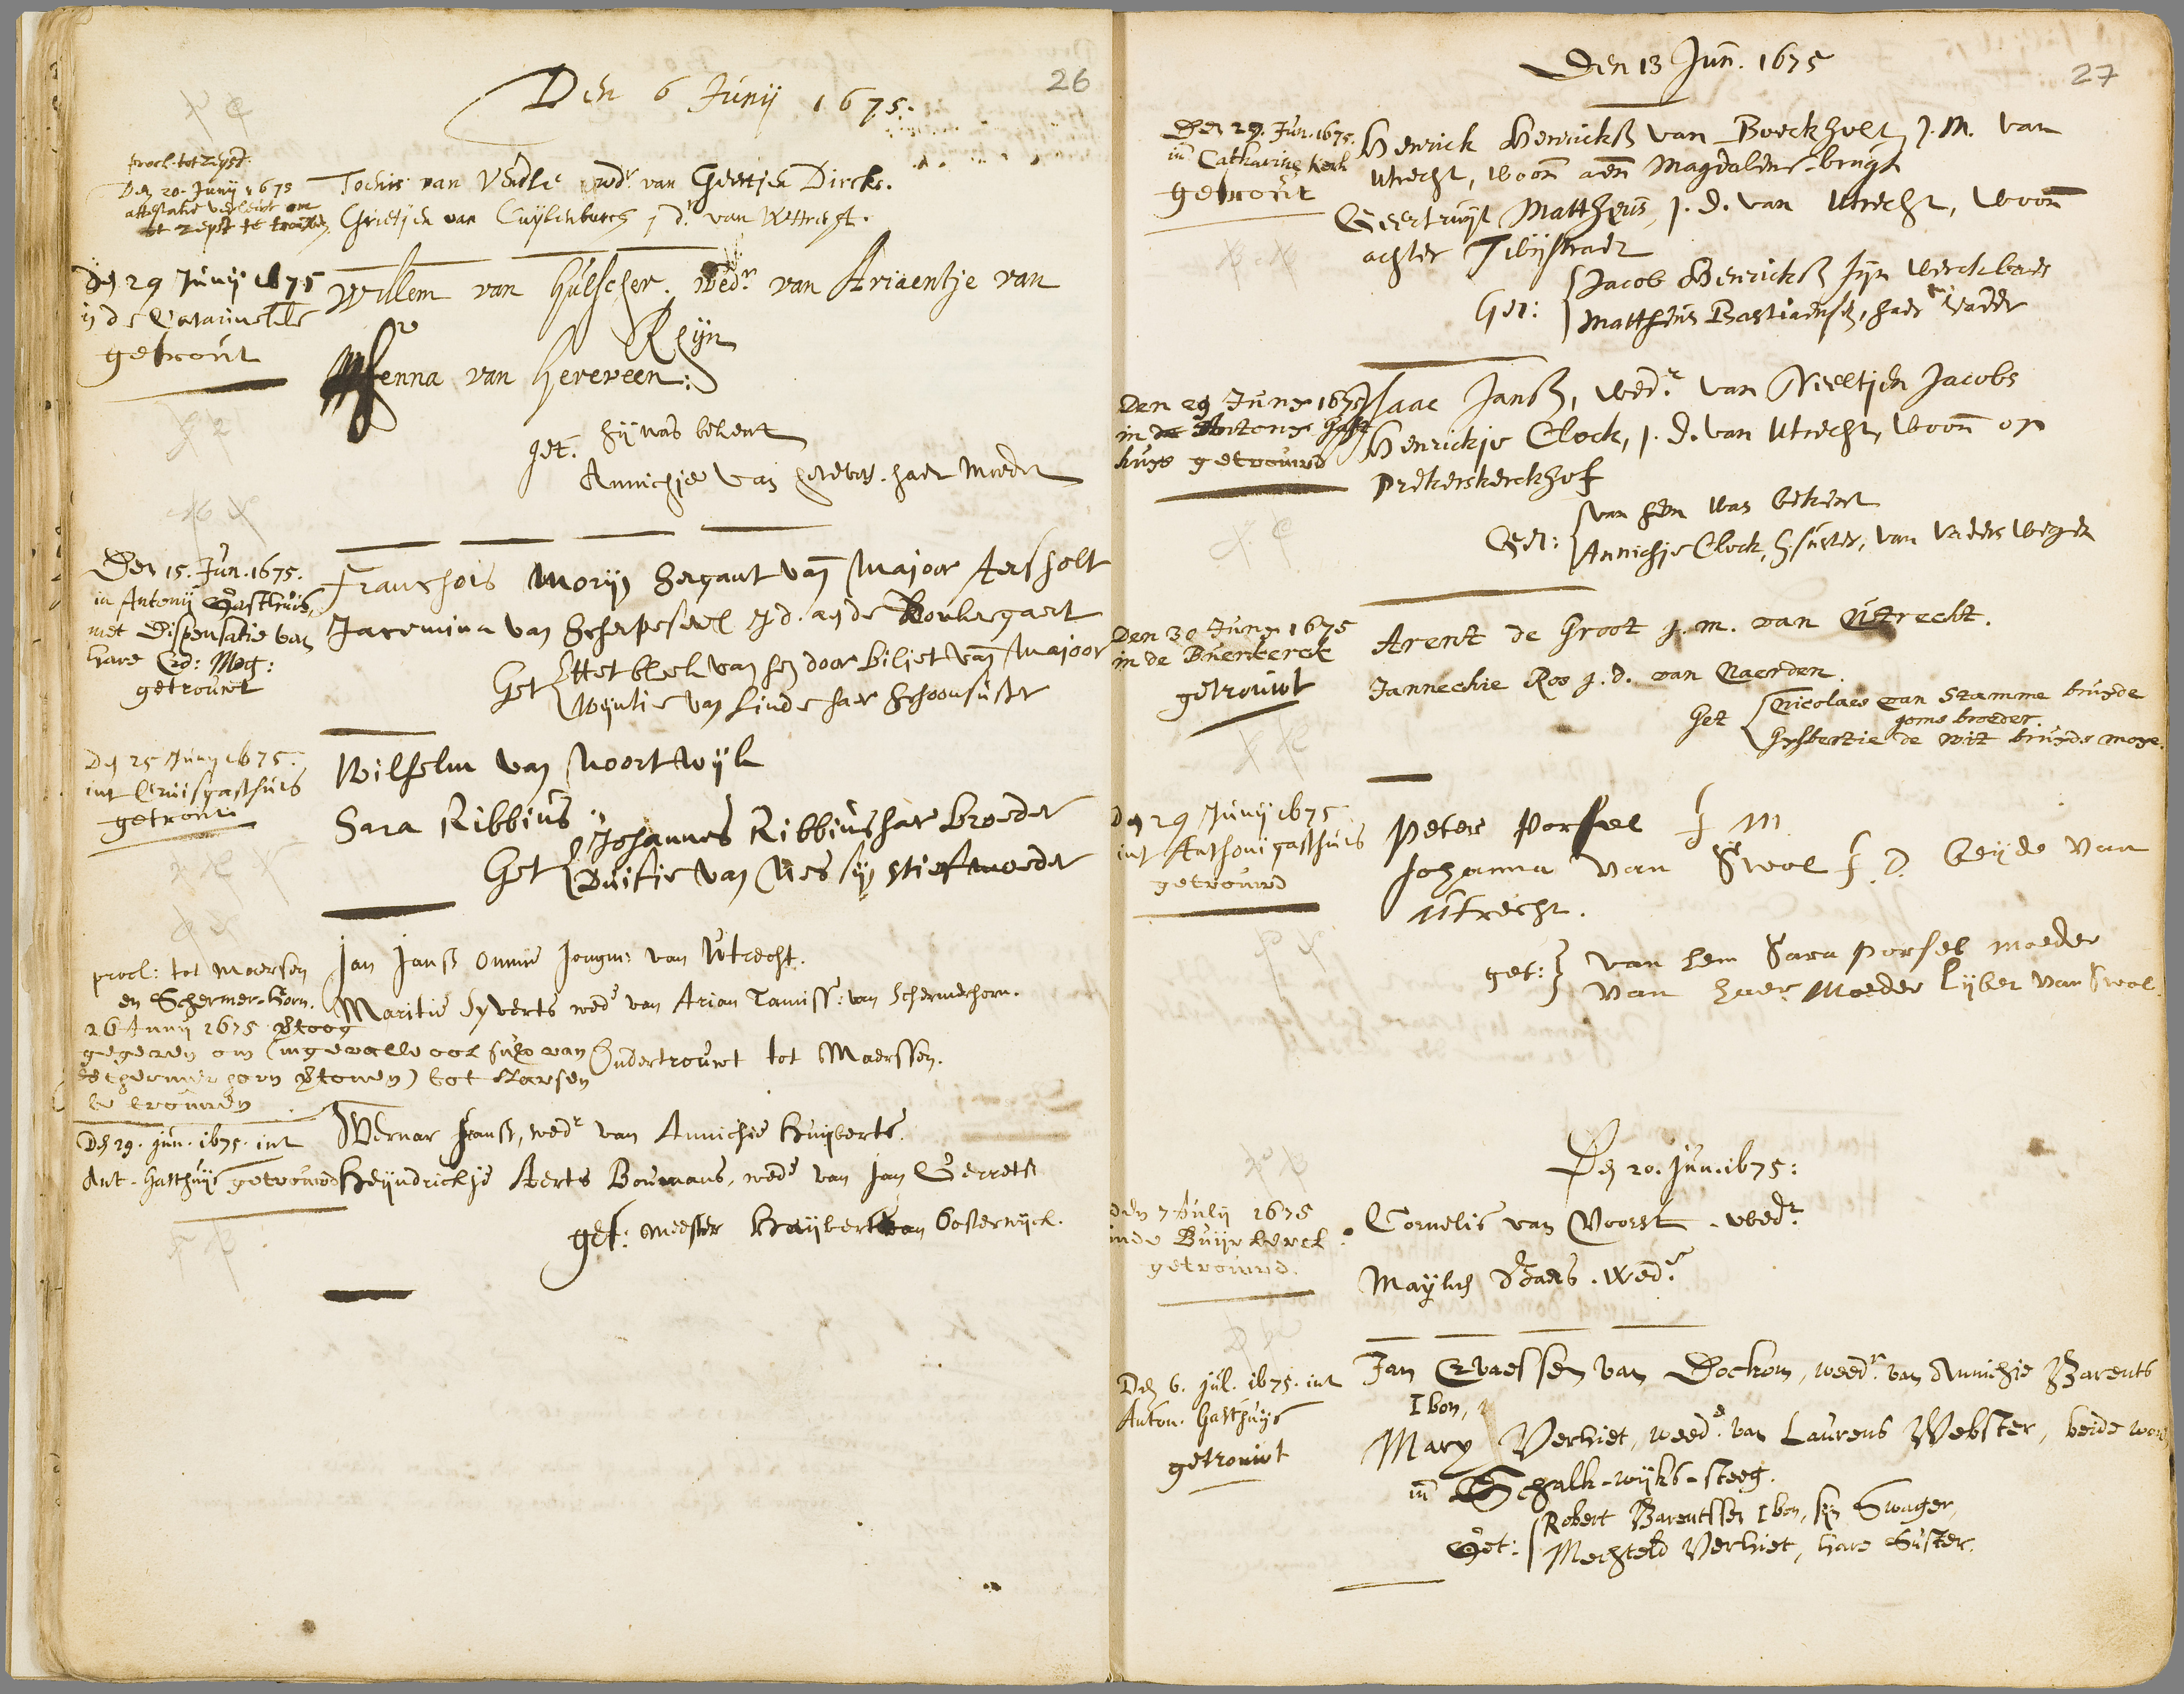 26
Den 6 Junij 1675.
procl. tot Zeyst.
Den 20. Junij 1675
attestatie verleent om
tot Zeyst te trouwen
Tochis van Vendle wedr. van Geertjen Dircks.
Grietjen van Cuijlenburch j d. van Wttrecht.
den 29 Junij 1675
in de Catarine kerk
getrout
Willem van Hulscher. wedr. van Ariaentje van
Rhijn
Henna van Hereveen:
get. hij was bekent
Annichje van herevens. haer moeder
Den 15. Jun. 1675.
in Antonij Gasthuis,
met Dispensatie van
hare Ed: Mog:
getrouwt
Franchois Morijn Sergant van Majoor Aersholt
Jacomina van Scherpeseel j d. aen de Boulegaert
Get Het bleek van hen door biljet van Majoor
Wijntie van Linde haer Schoonsuster
den 25 Junij 1675.
int Cruisgasthuis
getrout
Wilhelm van Noortwijk
Sara Ribbius
Get Johannes Ribbius haer broeder
Duifie van Nes sijn stiefmoeder
procl: tot Maersen
en Schermer-horn.
26 Junij 1675 betoog
gegeven om (ingevalle ook sulx van
Schermerhorn betonen) tot Maersen
te trouwen
Jan Janss Omme Jongm: van Utrecht.
Maritie Syverts wede van Arian Tamiss: van Schermerhorn.
Ondertrouwt tot Maerssen.
Den 29. jun. 1675. int
Ant. Gasthuijs getrouwd
Wernar Janss, wedr. van Annichie Huijberts.
Heijndrickje Aerts Boumans, wede van Jan Gerrets
get: meester Huijbert van Oosterwijck.
27
Den 13 Jun. 1675
Den 29. Jun. 1675.
in Catharine kerk
getrout
Henrick Henrickss van Boeckholt, J. M. van
Utrecht, woon aen Magdalene-brugh
Geertruijt Mattheus, j. d. van Utrecht, woon
achter Twijstraet
Get: Jacob Henrickss sijn werckbaes
Mattheus Bastiaensen, haer vader
Den 29 Juny 1675
in de Antony Gast
huys getrouwd
Isaac Janss, wedr. van Neeltjen Jacobs
Henrickje Clock, j. d. van Utrecht, woon op
Prekerskerckhof
Get: van hem was bekent
Annichje Clock, h suster, van vaders wegen
Den 30 Juny 1675
in de Buerkerck
getrouwt
Arent de Groot j. m. van Utrecht.
Jannechie Roo j. d. van Naerden.
Get Nicolaes van Stamme bruyde
goms broeder.
Gysbertie de Wit bruyds moye.
den 29 Junij 1675
int Anthoni gasthuis
getrouwd
Peter Porsel J M
Johanna van Swol J. D. beijde van
Utrecht.
get: van hem Sara Porsel moeder
van haer Moeder Lijbet van Swol.
Den 20. Jun. 1675:
den 7 Julij 1675
inde Buijrkerck
getrouwd.
Cornelis van Voorst. wedr.
Mayken Baers. Wede.
Den 6. jul. 1675. int
Anton. Gasthuijs
getrouwt
Jan Evaessen van Dockom, weedr. van Annichie Barents
Ibon,
Mary Verhiet, weede. van Laurens Webster, beide woon
in Schalk-wijks-steeg.
Get: Robert Barentssen Ibon, syn Swager,
Mechteld Verhiet, hare Suster.